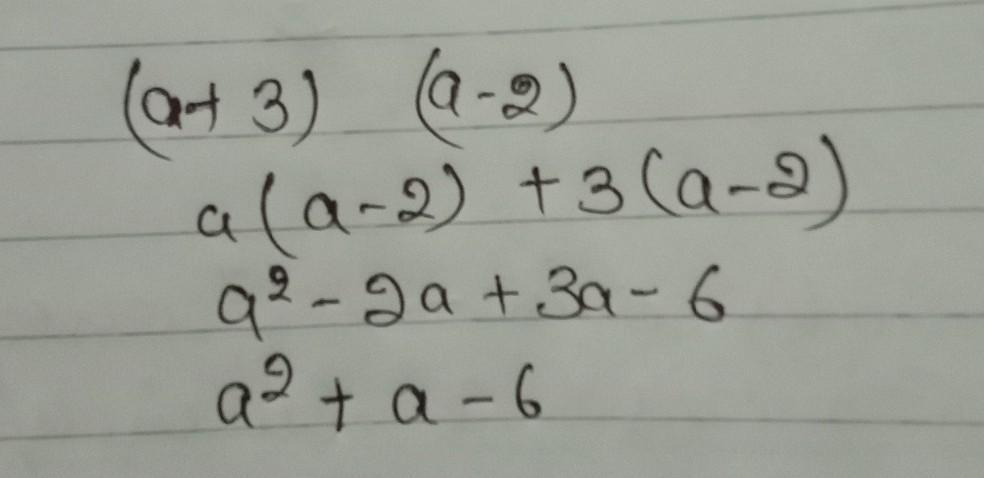 (a+3) (a-2)
a(a-2) +3(a-2)
a² - 2a + 3a - 6
a² + a - 6